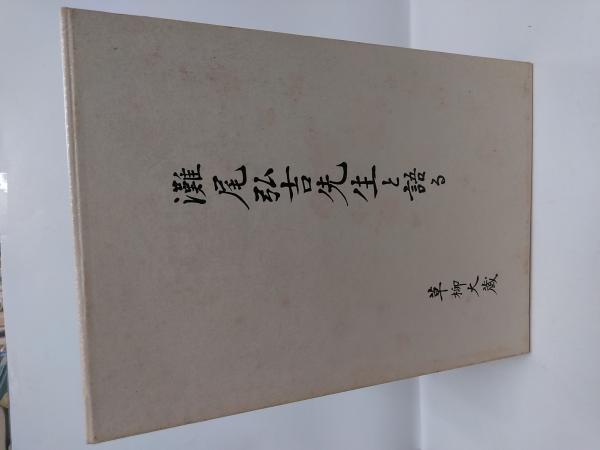 灘尾弘吉先生と語る
草柳大蔵